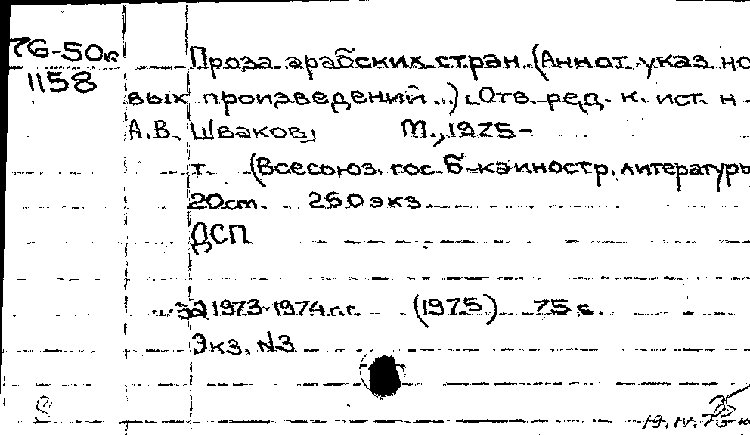 76-50к
1158
Проза арабских стран. (Аннот. указ. но
вых произведений...). Отв. ред. к. ист. н.
А.В. Шваков. М., 1975-
т. (Всесоюз. гос. б-ка иностр. литературы
20см. 250 экз.
ДСП
за 1973-1974 г.г. (1975) 75 с.
Экз. №3
19.IV.76